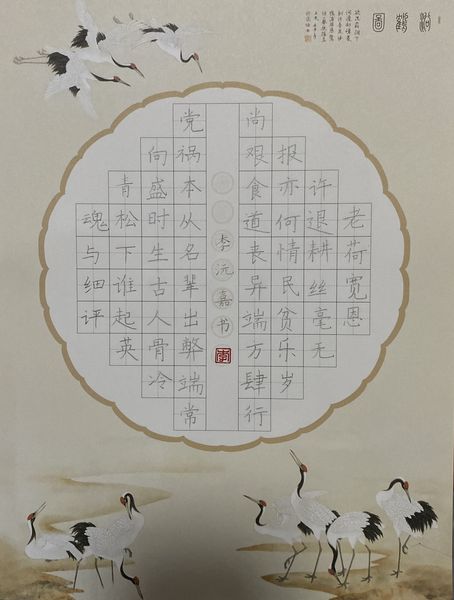 鶴圖
老荷宽恩
许退耕丝毫无
报亦何情民贫乐岁
尚艰食道丧异端方肆行
党祸本从名辈出弊端常
向盛时生古人骨冷
青松下谁起英
魂与细评
李沅嘉书